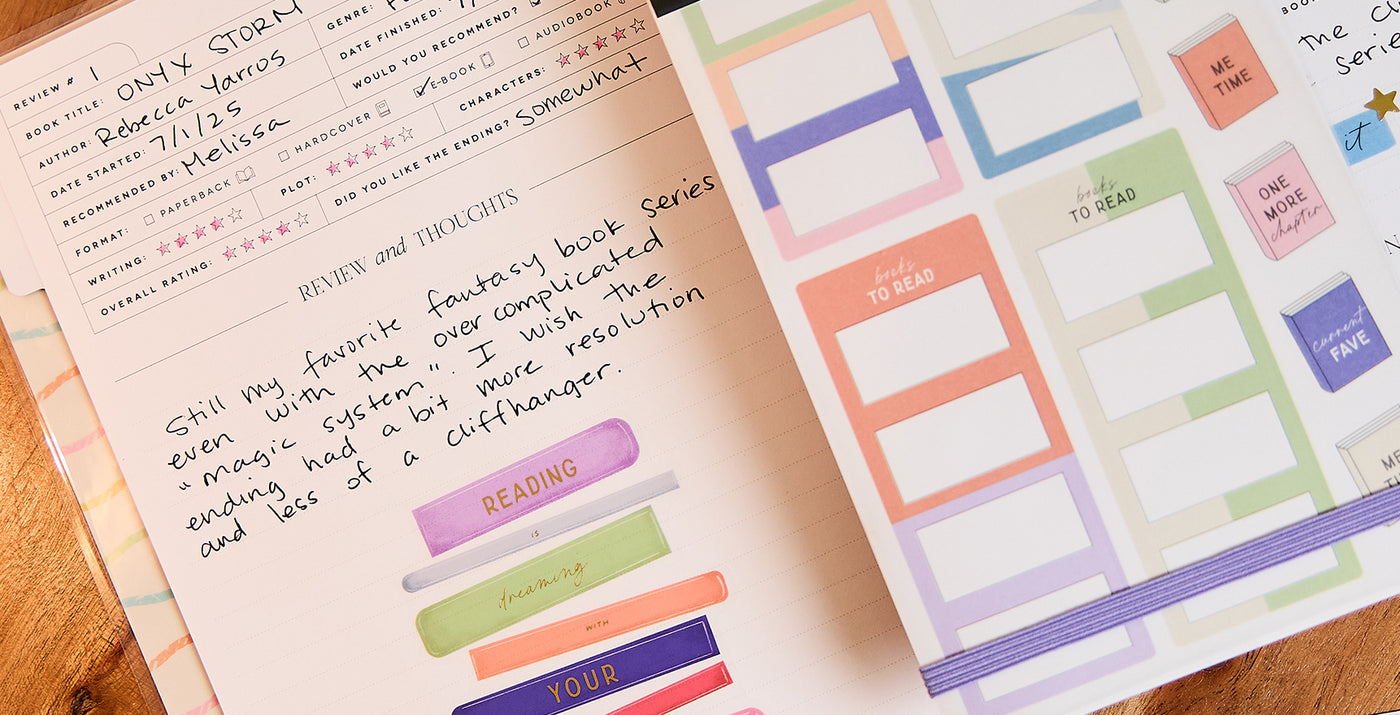 REVIEW # 1
BOOK TITLE: ONYX STORM
GENRE:
AUTHOR: Rebecca Yarros
DATE FINISHED:
DATE STARTED: 7/1/25
WOULD YOU RECOMMEND?
RECOMMENDED BY: Melissa
FORMAT: PAPERBACK HARDCOVER E-BOOK AUDIOBOOK
WRITING: PLOT: CHARACTERS:
OVERALL RATING: DID YOU LIKE THE ENDING? Somewhat
REVIEW and THOUGHTS
Still my favorite fantasy book series
even with the over complicated
"magic system". I wish the
ending had a bit more resolution
and less of a cliffhanger.
READING
IS
dreaming
WITH
YOUR
books
TO READ
books
TO READ
ME
TIME
ONE
MORE
chapter
current
FAVE
ME
the
serie
it